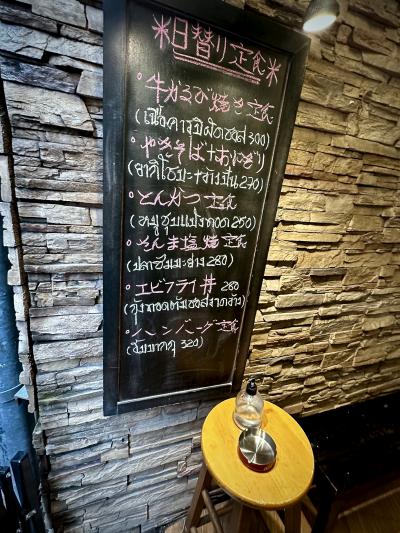 *日替り定食*
・牛カルビ焼き定食
(เนื้อคารูบิผัดซอส 300)
・やきそば+おにぎり
(ยากิโซบะ+ข้าวปั้น 270)
・とんかつ定食
(หมูชุบแป้งทอด 250)
・さんま塩焼定食
(ปลาซัมมะย่าง 280)
・エビフライ丼 280
(กุ้งทอด
・ハンバーグ定食
(ฮัมบากุ 320)